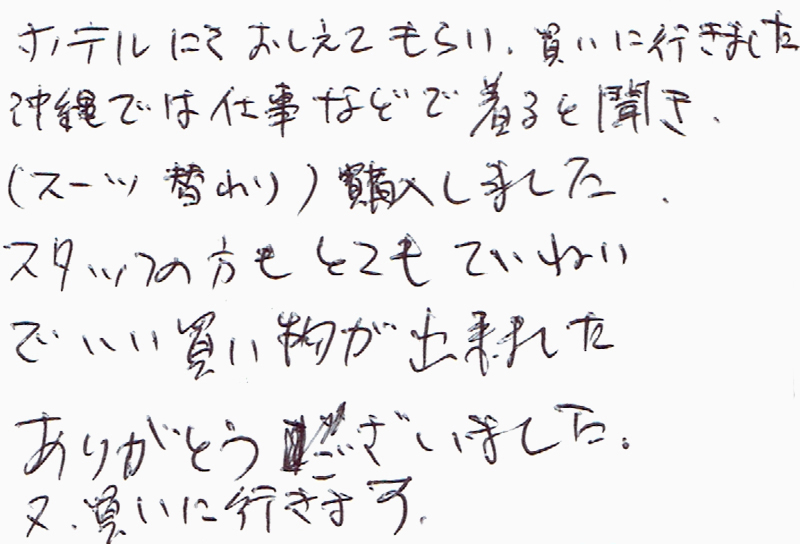 ホテルにておしえてもらい、買いに行きました
沖縄では仕事などで着ると聞き、
(スーツ替わり)購入しました、
スタッフの方もとてもていねい
でいい買い物が出来ました
ありがとうございました。
又、買いに行きます。